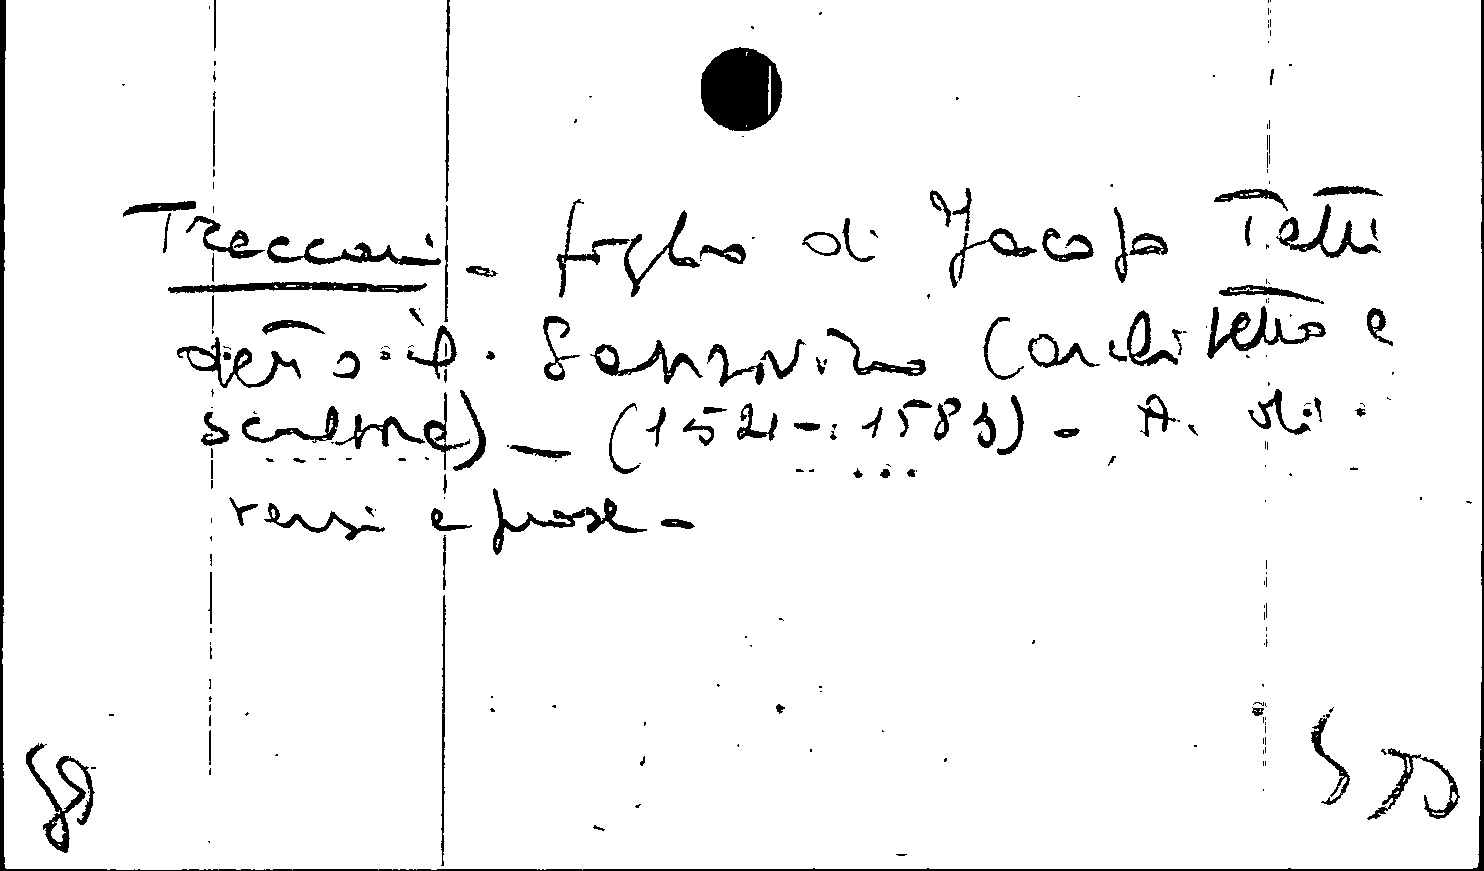 Treccani - figlio di Jacopo Tatti
detto il Sansovino (architetto e
scultore) - (1521 - 1583) - A. di
versi e prose -